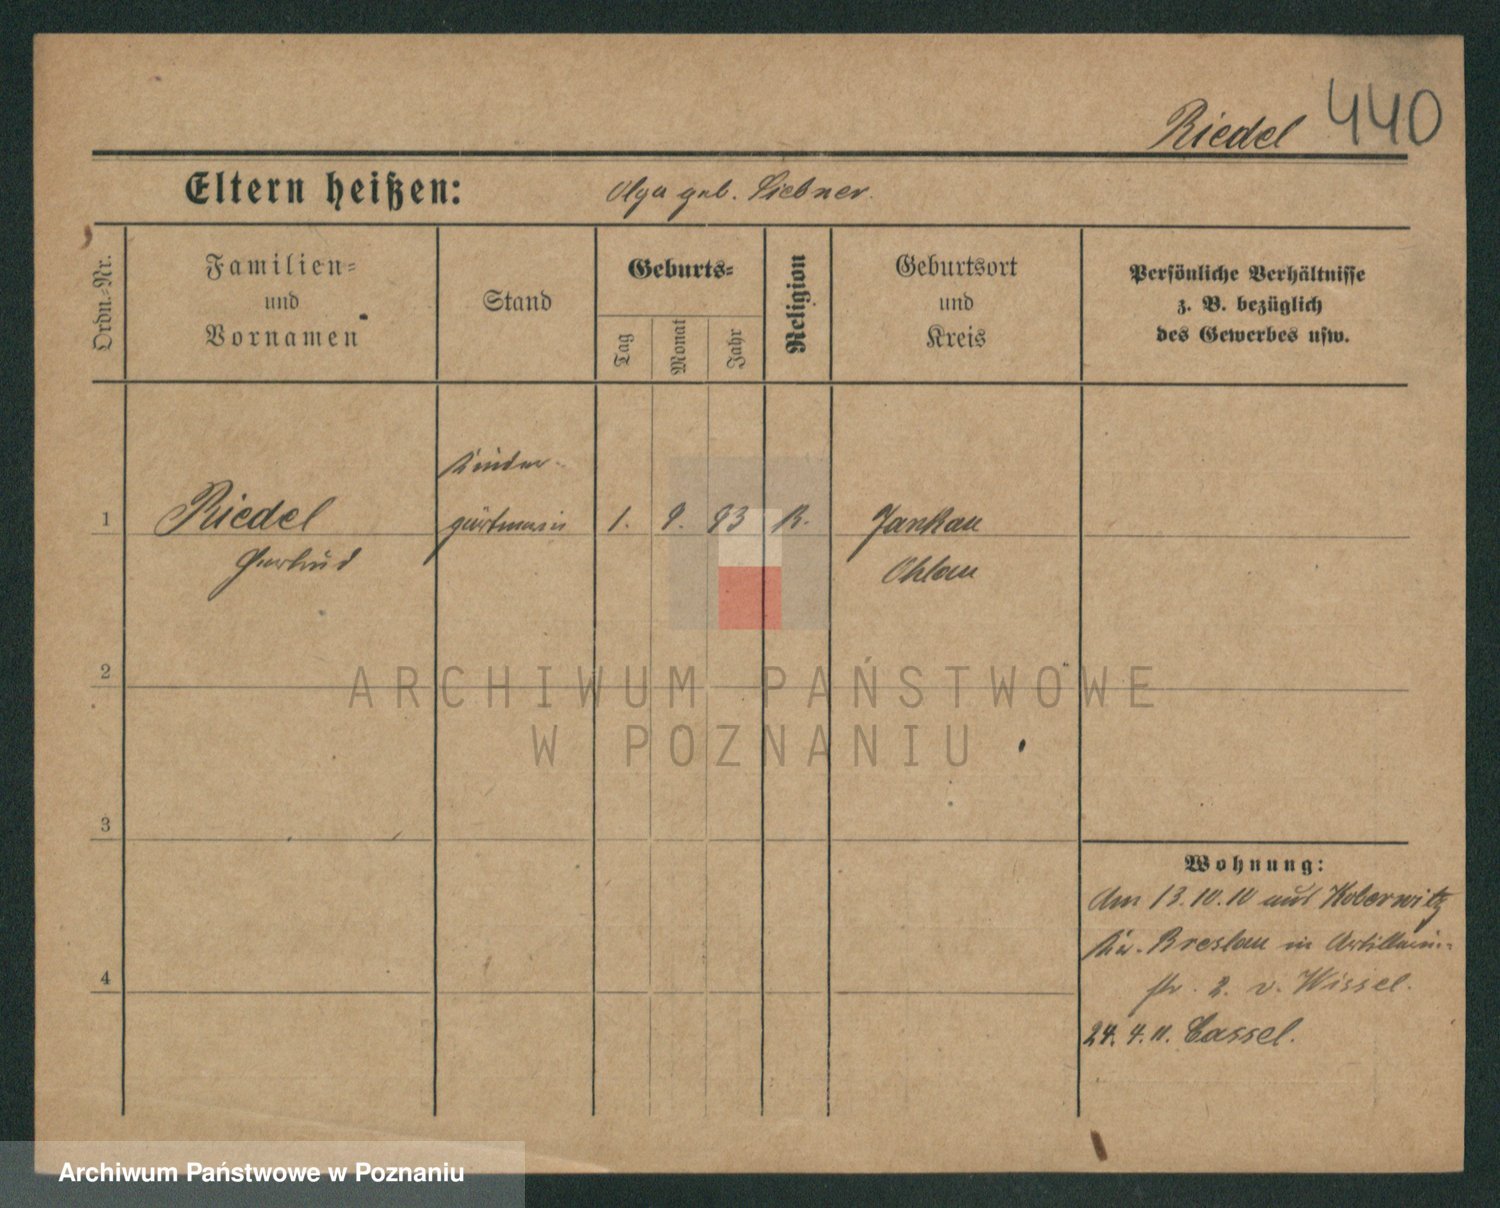 Riedel 440
Eltern heißen: Olga geb. Liebner.
Ordn.-Nr.
Familien-
und
Vornamen
Stand
Geburts-
Tag
Monat
Jahr
Religion
Geburtsort
und
Kreis
Persönliche Verhältnisse
z. B. bezüglich
des Gewerbes usw.
Kinder-
1 Riedel gärtnerin 1. 9. 93 K. Jankau
Gertrud Ohlau
2
3
4
Wohnung:
Am 13.10.10 aus Koberwitz
Kr. Breslau in Artillerie-
str. 2. v. Wissel.
24. 4. 11. Cassel.
ARCHIWUM PAŃSTWOWE
W POZNANIU
Archiwum Państwowe w Poznaniu